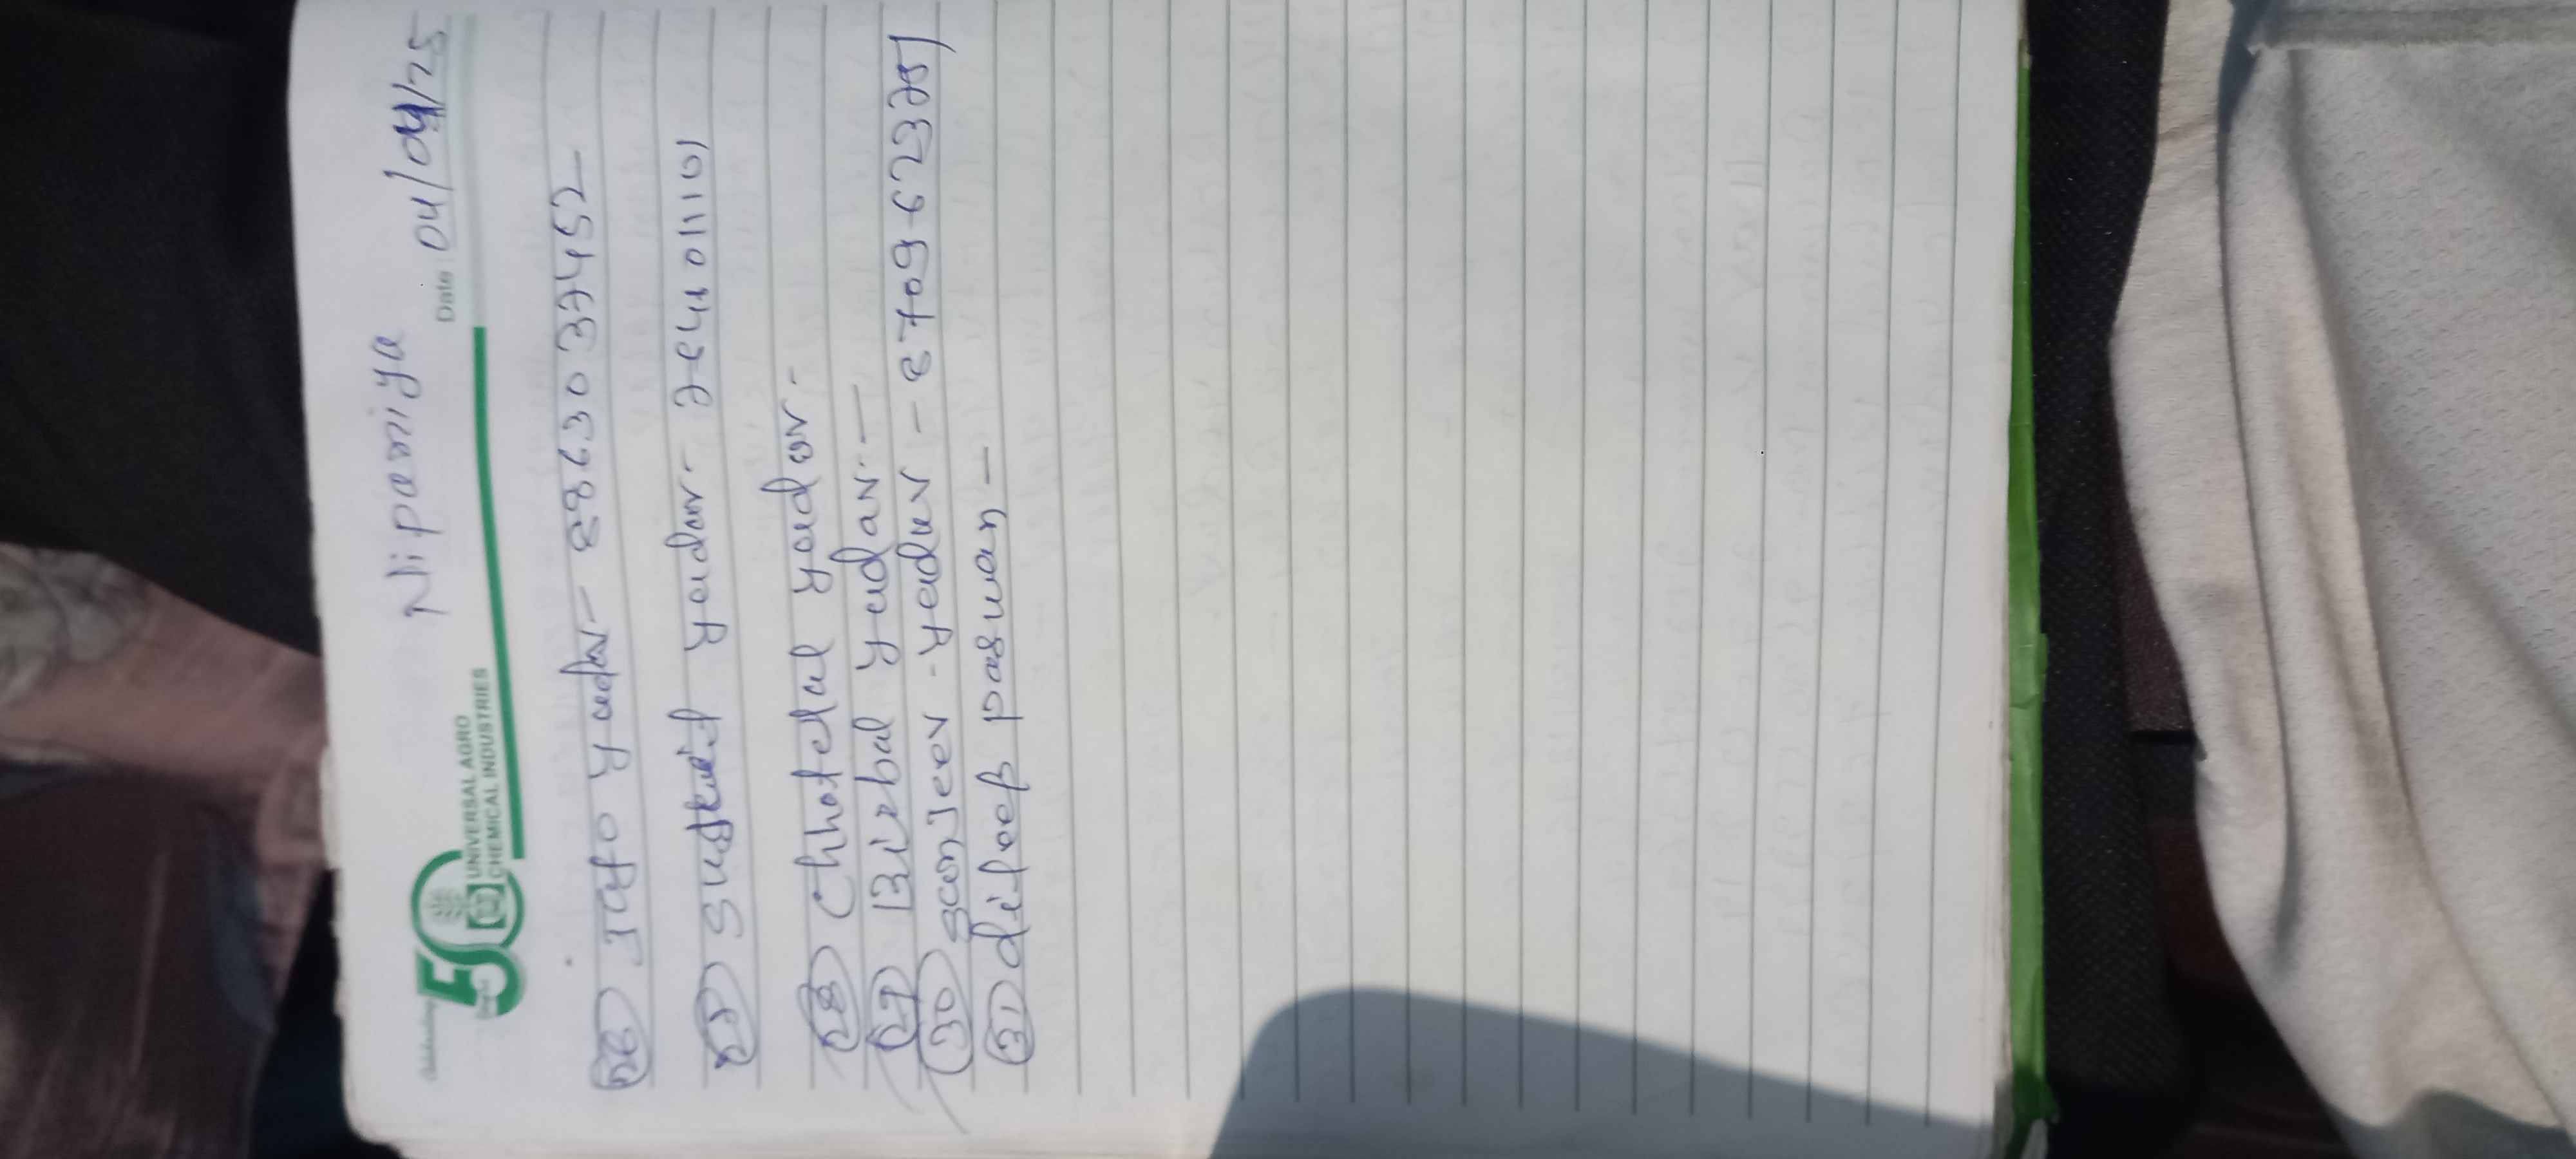 Nipaniya
Celebrating
50
UNIVERSAL AGRO
CHEMICAL INDUSTRIES
Date 04/04/25
26 yadav - 8863037452
27 yadav - 7294011101
28 Chhotelal yadav -
29 Birbal yadav -
30 sanjeev - yadav - 8709673251
31 dileep paswan -